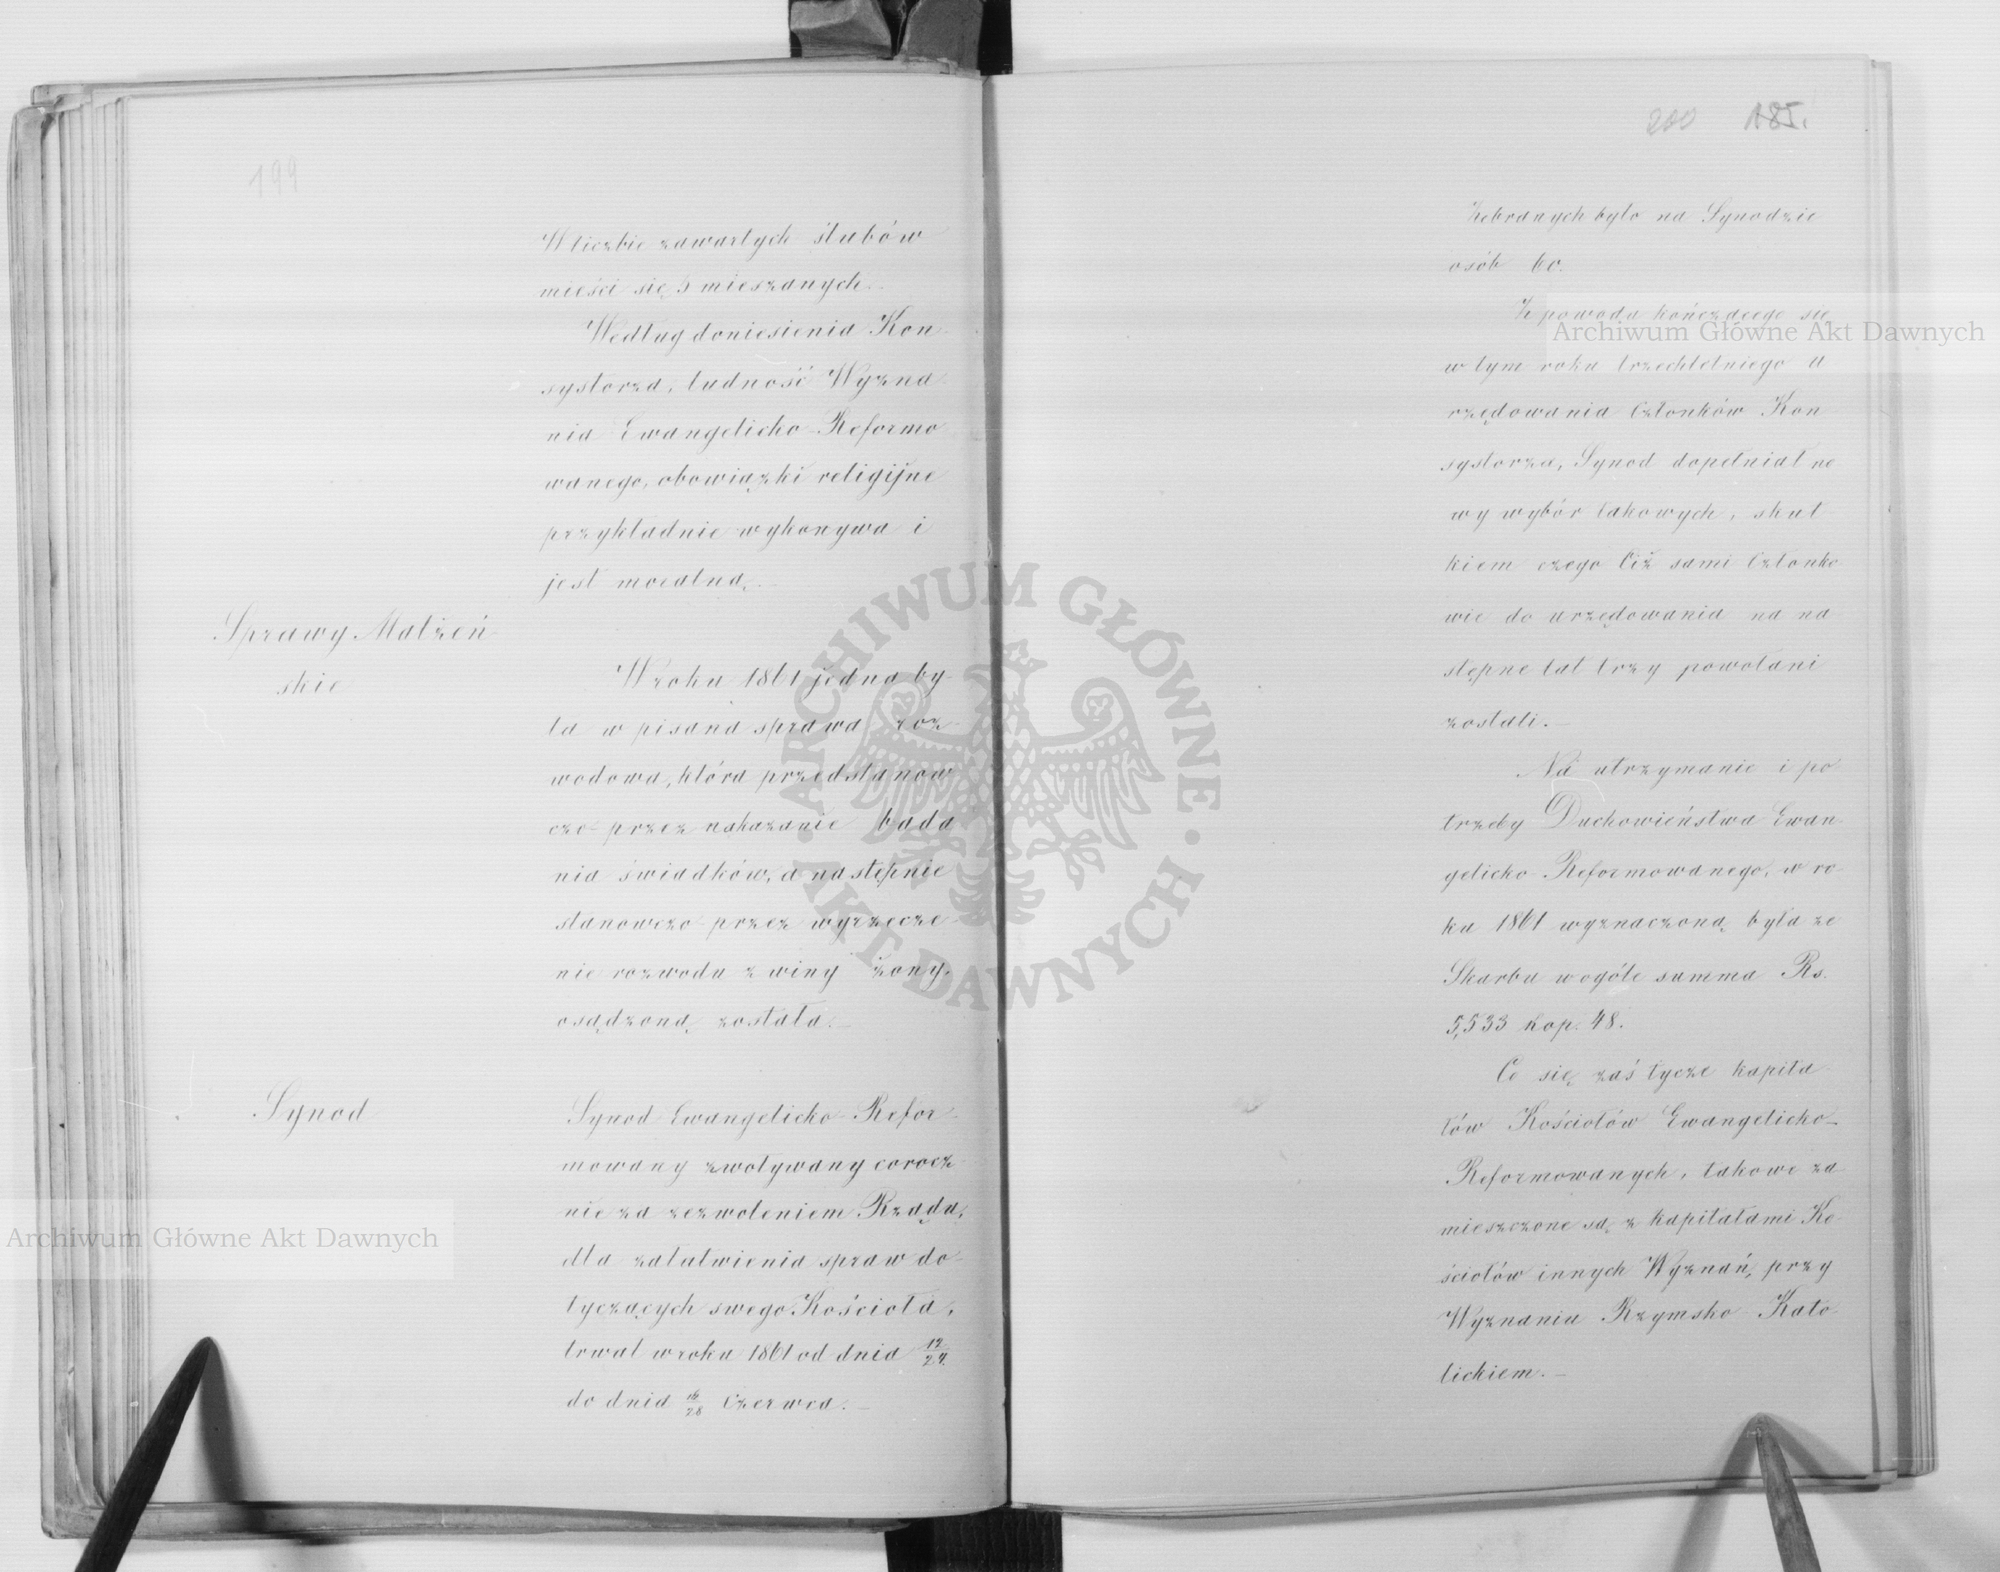 199
W liczbie zawartych ślubów
mieści się 5 mieszanych.
Według doniesienia Kon-
systorza, ludność Wyzna-
nia Ewangelicko-Reformo
wanego, obowiązki religijne
przykładnie wykonywa i
jest moralną.
Sprawy Małżeń-
skie
W roku 1861 jedna by-
ła wpisana sprawa roz-
wodowa, która przedstanow
czo przez nakazanie bada
nia świadków, a następnie
stanowczo przez wyrzecze-
nie rozwodu z winy żony,
osądzoną została.
Synod
Synod Ewangelicko-Refor-
mowany zwoływany corocz
nie za zezwoleniem Rządu,
dla załatwienia spraw do-
tyczących swego Kościoła,
trwał w roku 1861 od dnia 12/24.
do dnia 16/28 Czerwca.
200 185.
Zebranych było na Synodzie
osób 60.
Z powodu kończącego się
w tym roku trzechletniego u-
rzędowania Członków Kon
systorza, Synod dopełniał no
wy wybór takowych, skut
kiem czego Ciż sami Członko
wie do urzędowania na na
stępne lat trzy powołani
zostali.
Na utrzymanie i po-
trzeby Duchowieństwa Ewan-
gelicko-Reformowanego, w ro-
ku 1861 wyznaczoną była ze
Skarbu w ogóle summa Rs.
5,533 kop. 48.
Co się zaś tycze kapita-
łów Kościołów Ewangelicko-
Reformowanych, takowe za
mieszczone są z kapitałami Ko-
ściołów innych Wyznań, przy
Wyznaniu Rzymsko-Kato-
lickiem.
Archiwum Główne Akt Dawnych
Archiwum Główne Akt Dawnych
ARCHIWUM GŁÓWNE · AKT DAWNYCH ·